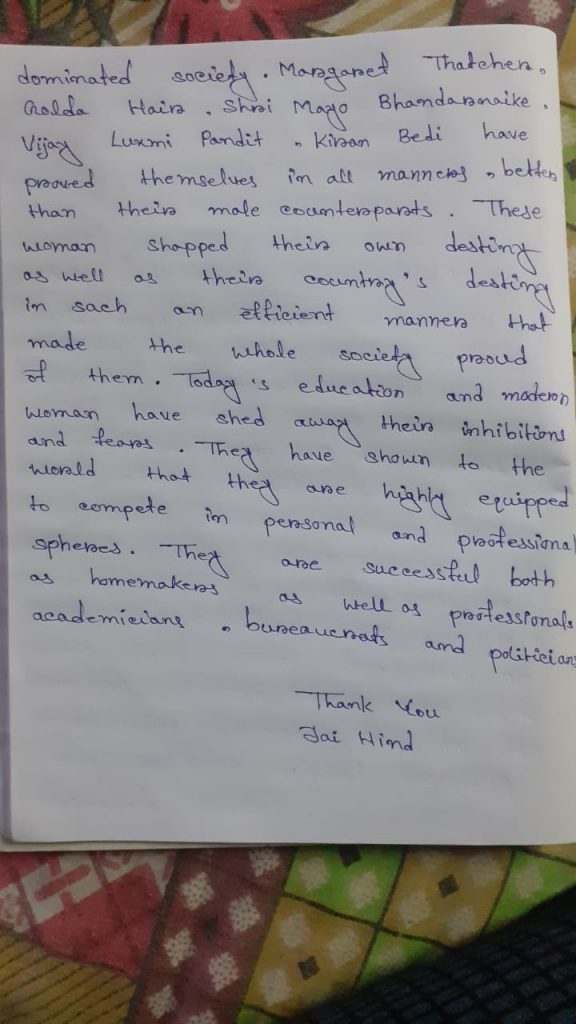 dominated society. Margaret Thatcher,
Golda Hair, Shri Mayo Bhandarnaike,
Vijay Luxmi Pandit, Kiran Bedi have
proved themselves in all manners, better
than their male counterparts. These
woman shapped their own destiny
as well as their country's destiny
in sach an efficient manner that
made the whole society proud
of them. Today's education and modern
woman have shed away their inhibitions
and fears. They have shown to the
world that they are highly equipped
to compete in personal and professional
spheres. They are successful both
as homemakers as well as professionals
academicians, bureaucrats and politicians
Thank You
Jai Hind